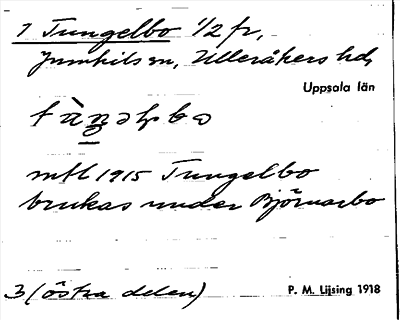 1 Tungelbo 1/2 fr,
Jumkils sn, Ulleråkers hd,
Uppsala län
mtl 1915 Tungelbo
brukas under Björnarbo
3 (östra delen)
P. M. Lijsing 1918